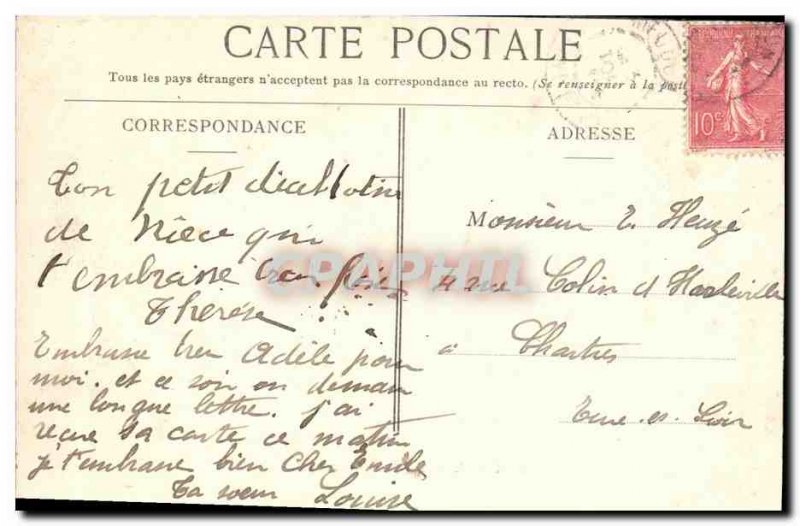 CARTE POSTALE
Tous les pays étrangers n'acceptent pas la correspondance au recto. (Se renseigner à la post
CORRESPONDANCE
Ton petit diablotin
de Nièce qui
t'embrasse bien fort
Thérèse
Embrasse bien Adèle pour
moi. et ce soir ou demain
une longue lettre. j'ai
reçue sa carte ce matin
je t'embrasse bien cher Emile
Ta soeur Louise
ADRESSE
Monsieur E. Heuzé
4 rue Colin d'Harleville
à Chartres
Eure-et-Loir
REPUBLIQUE FRANÇAISE
10c
CPAPHIL